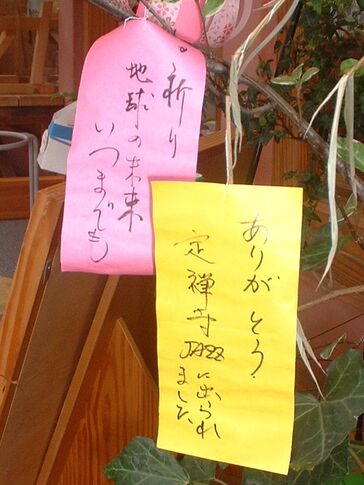 祈り
地球の未来
いつまでも
ありがとう.
定禅寺
JAZZ に出られ
ました